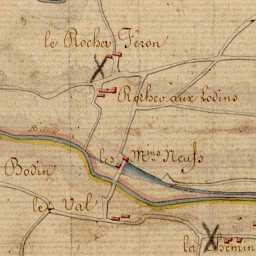 le Rocha Feron
Rocheo aux Lodins
les Mins Neufs
Bodin
le Val
la Chemin